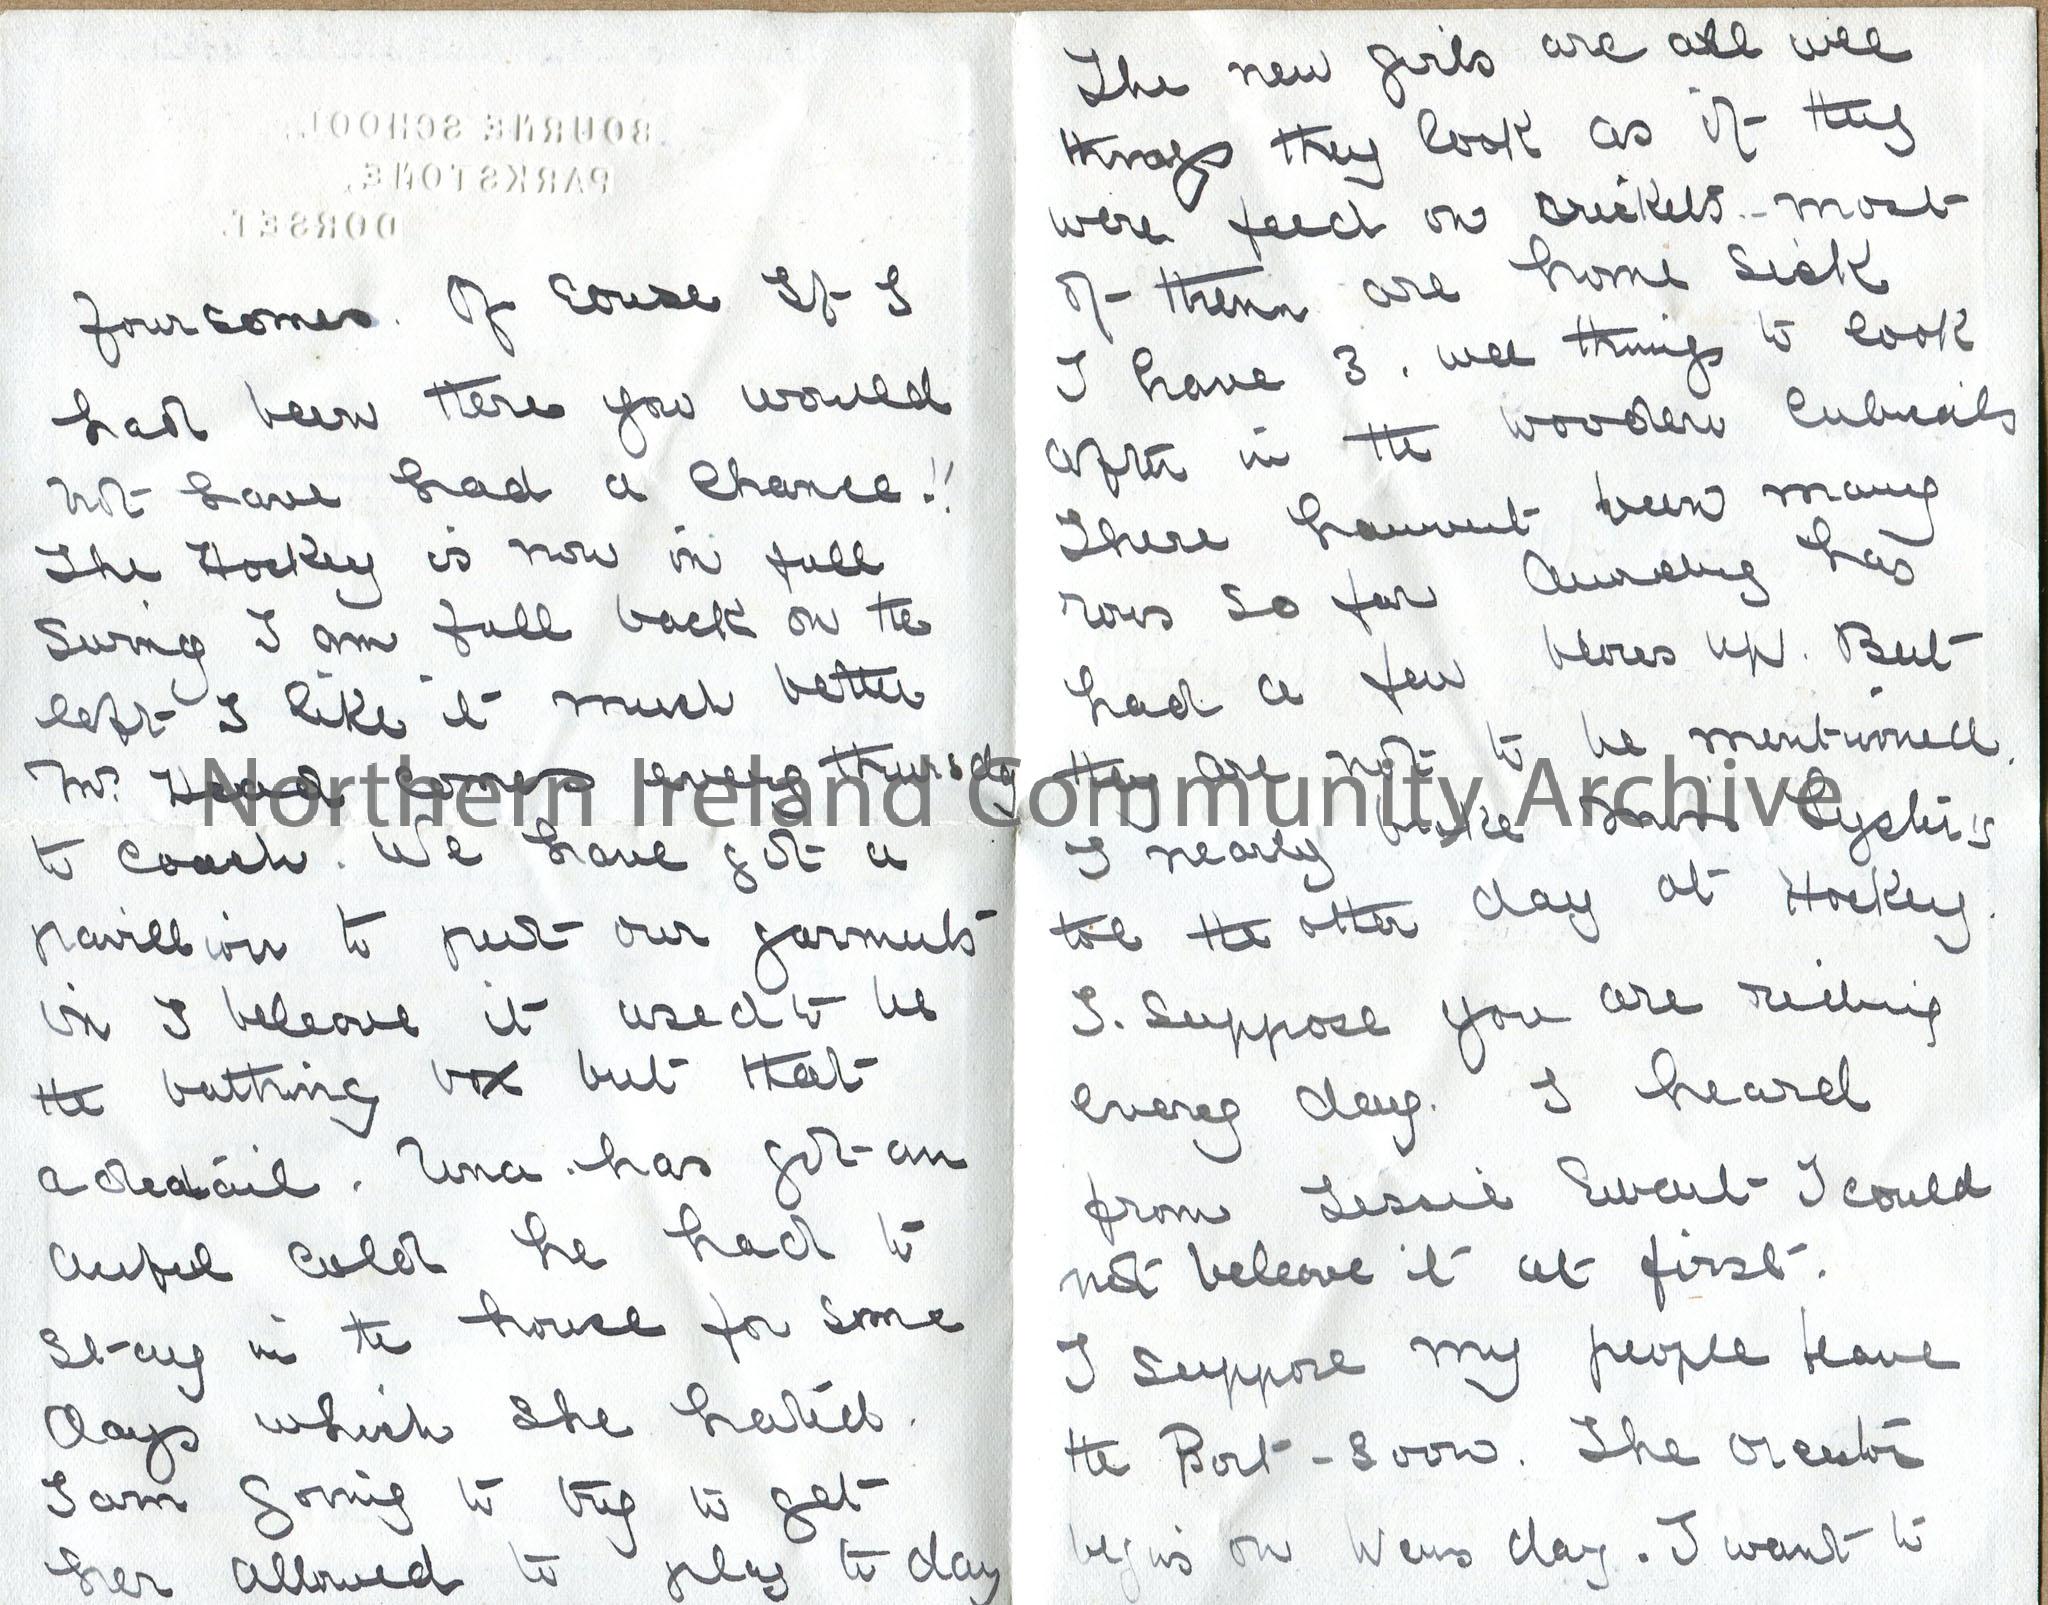 BOURNE SCHOOL,
PARKSTONE,
DORSET.
foursomes. Of couse If I
had been there you would
not have had a chance!!
The Hockey is now in full
swing I am full back on the
left I like it much better
Mr Head comes every thursday
to coach. We have got a
pavillion to put our garments
in I beleave it used to be
the bathing box but that
a deatail. Una has got an
awful cold he had to
stay in the house for some
days which she hated.
I am going to try to get
her allowed to play to day
The new girls are all wee
things they look as if they
were feed on crickets - most
of them are home sick
I have 3. wee things to look
after in the wooden
There havent been many
rows so far has
had a few blows up. But
they are not to be mentioned.
I nearly broke Miss
toe the other day at Hockey.
I. suppose you are riding
every day. I heard
from Lessie Ewart I could
not beleave it at first.
I suppose my people leave
the Port - soon. The
begins on Wens day. I want to
Northern Ireland Community Archive